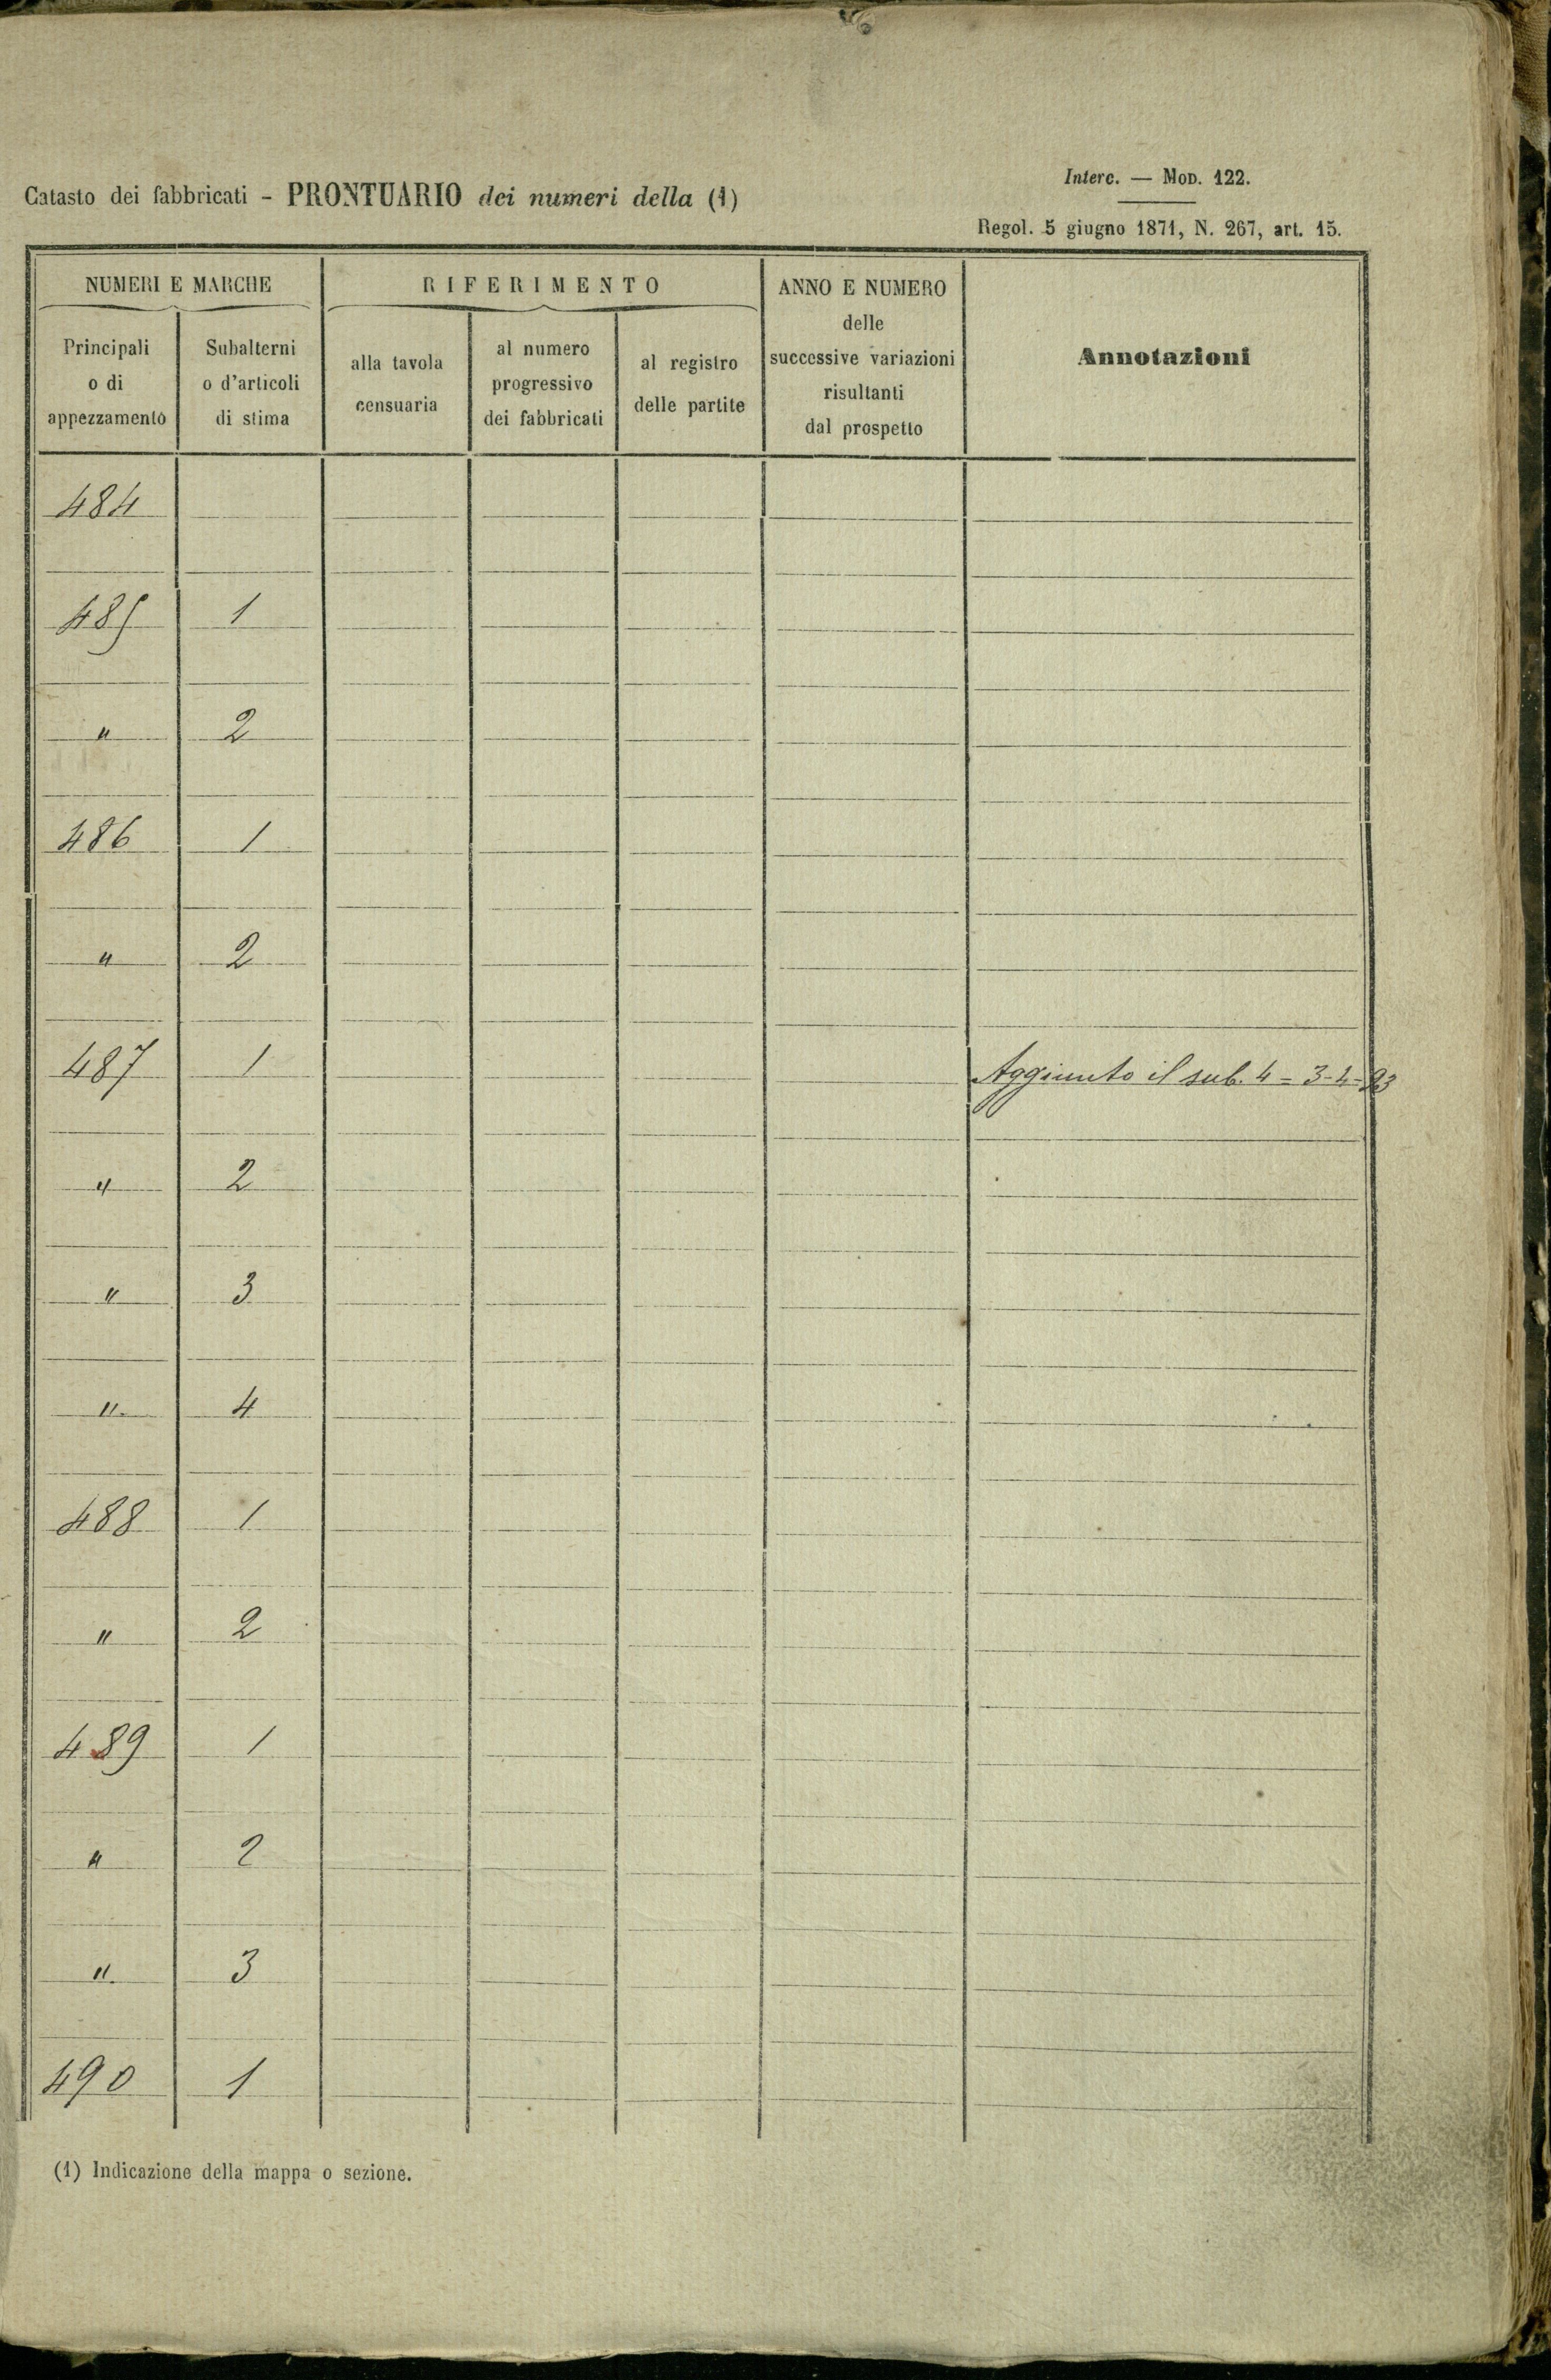 Catasto dei fabbricati - PRONTUARIO dei numeri della (1)
Interc. — Mod. 122.
Regol. 5 giugno 1871, N. 267, art. 15.
NUMERI E MARCHE
RIFERIMENTO
ANNO E NUMERO
delle
successive variazioni
risultanti
dal prospetto
Annotazioni
Principali
o di
appezzamento
Subalterni
o d'articoli
di stima
alla tavola
censuaria
al numero
progressivo
dei fabbricati
al registro
delle partite
484
485 1
" 2
486 1
" 2
487 1 Aggiunto il sub. 4 = 3-4-93
" 2
" 3
" 4
488 1
" 2
489 1
" 2
" 3
490 1
(1) Indicazione della mappa o sezione.